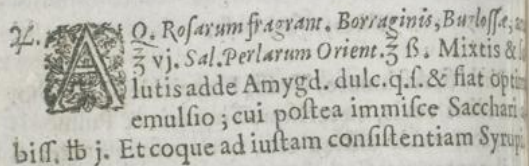 ℞. AQ. Rosarum fragrant. Borraginis, Buglossæ,
℥ vj. Sal. Perlarum Orient. ℥ ß. Mixtis &
lutis adde Amygd. dulc. q. s. & fiat opti
emulsio; cui postea immisce Sacchari
biss. ℔ j. Et coque ad iustam consistentiam Syrup